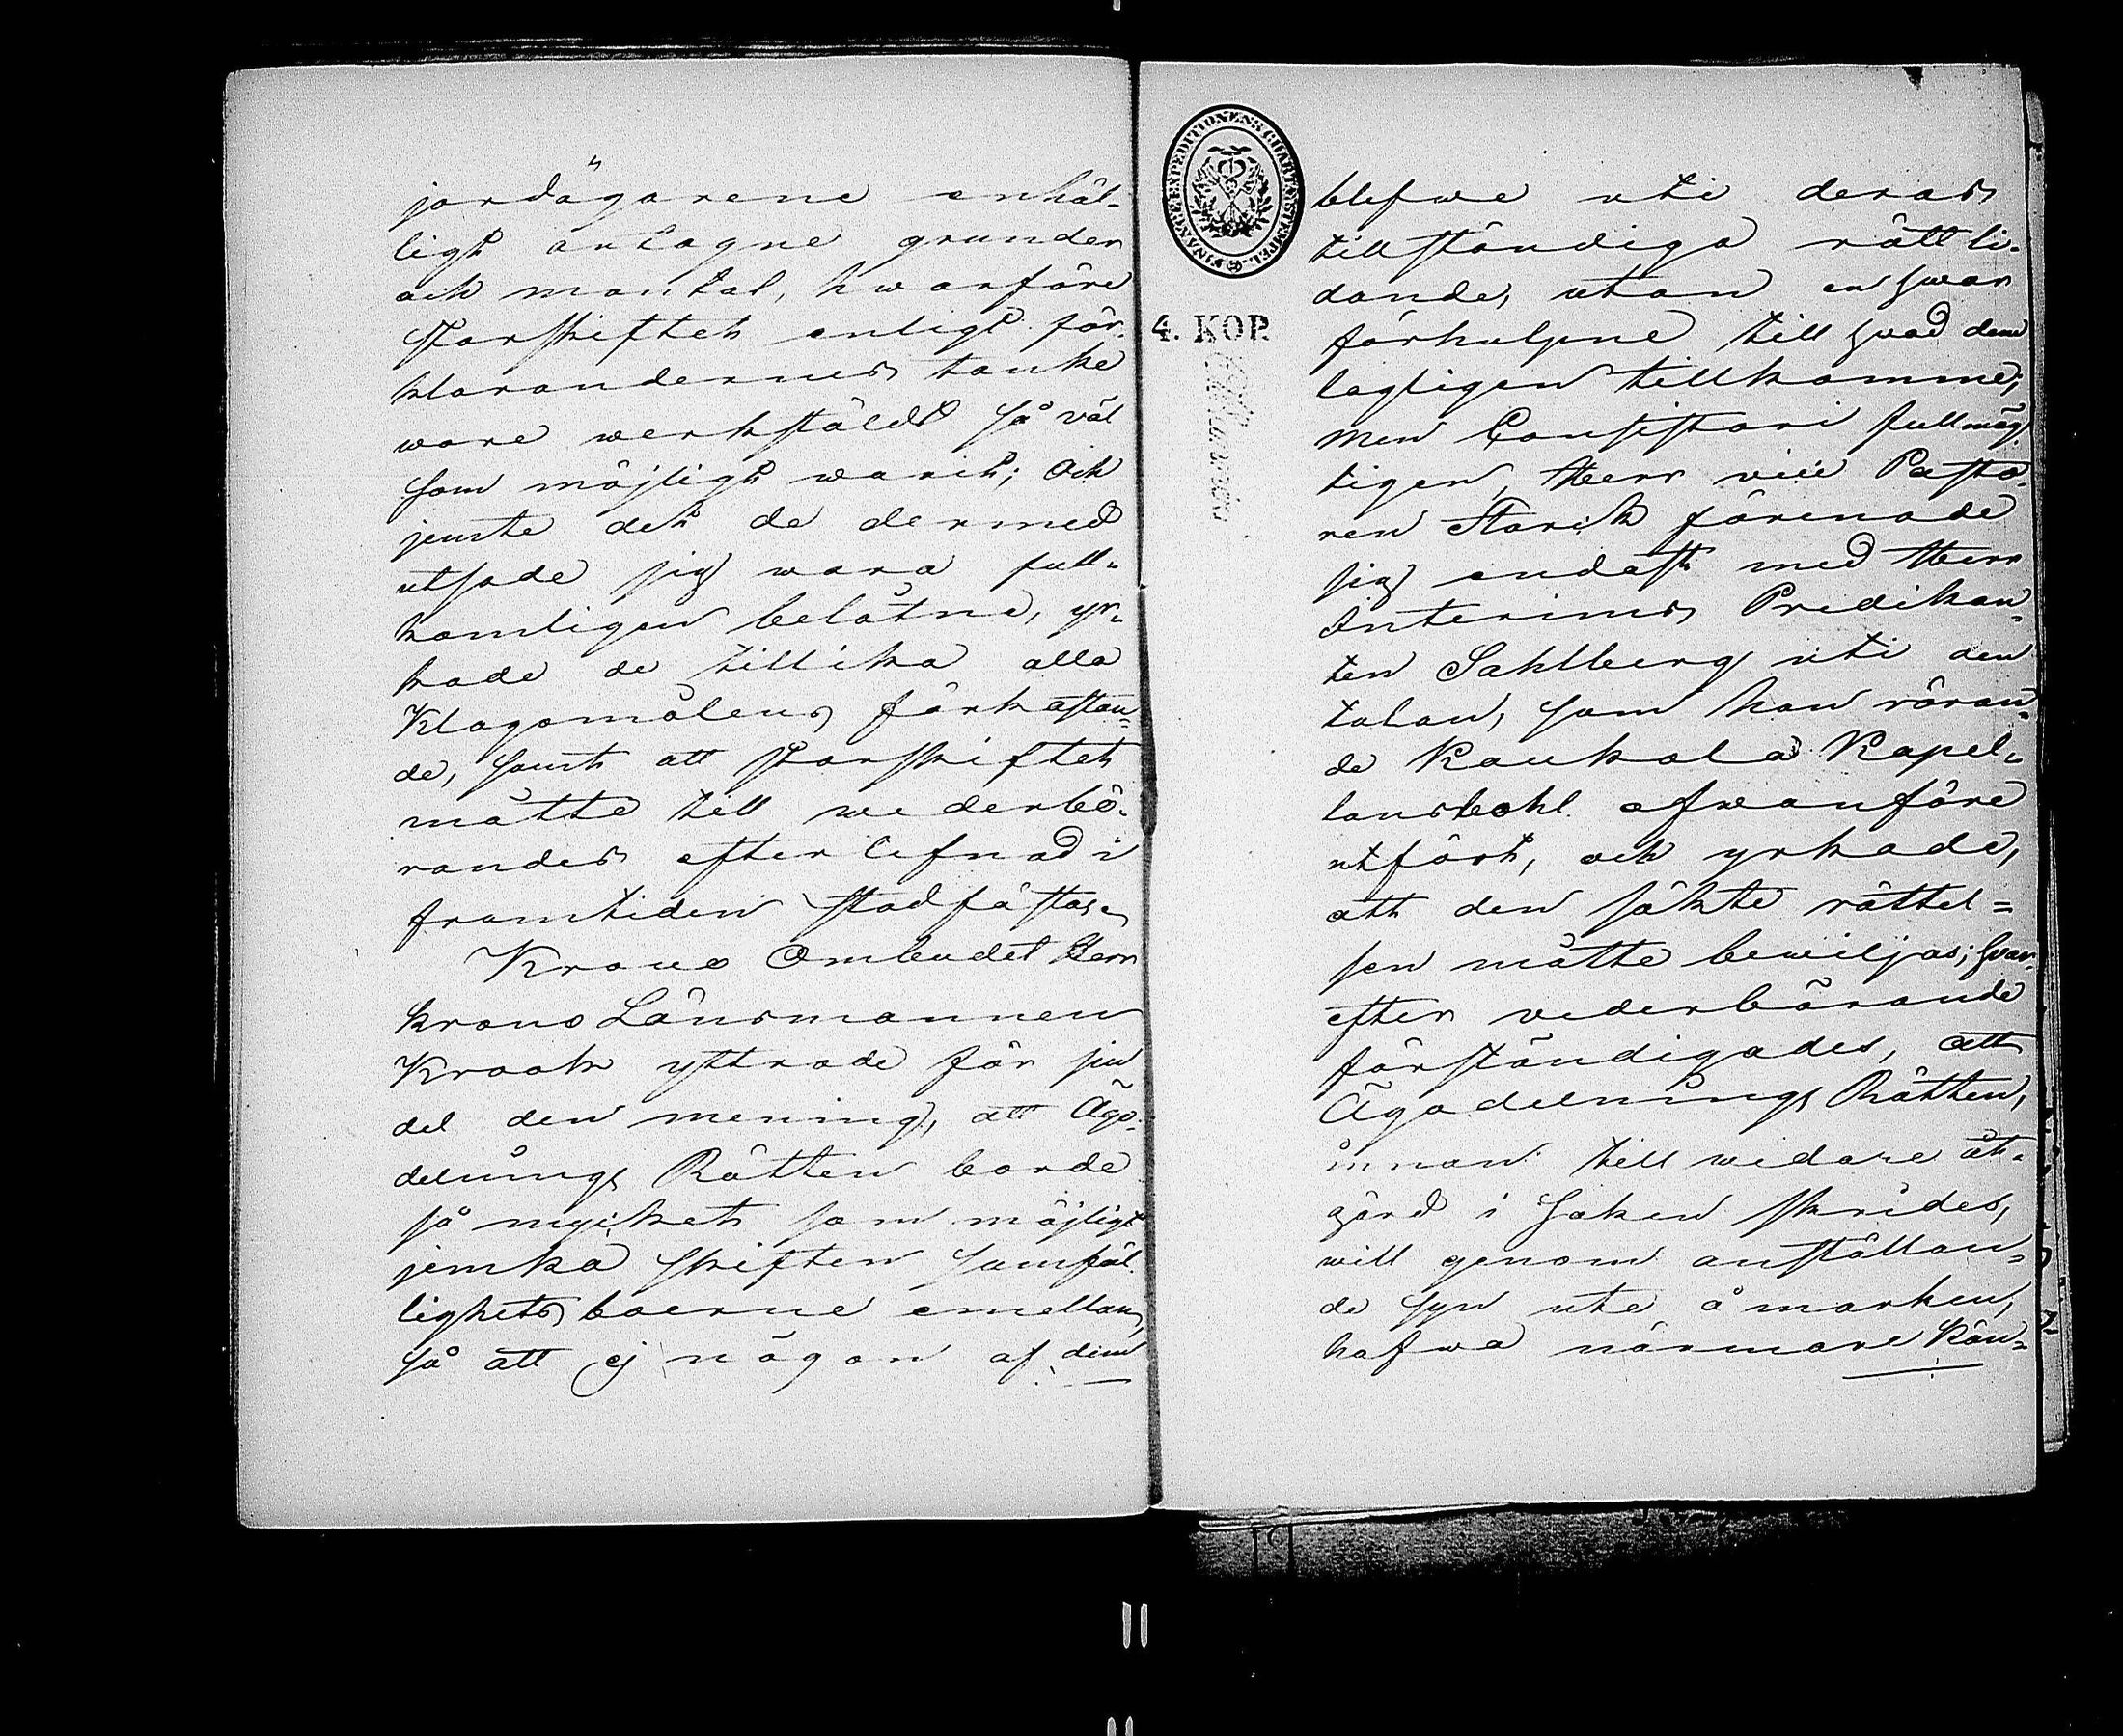 jordägarene enhäl-
ligt antagne grunder
och mantal, hwarföre
storskiftet enligt för-
klarandernes tanke
wore werkstäldt så väl
som möjligt warit; Och
jemte det de dermed
utsade sig wara full-
komligen belåtne, yr-
kade de tillika alla
Klagomålens förkastan-
de, samt att storskiftet
måtte till wederbö-
randes efterlefnad i
framtiden stadfästas.
Krono Ombudet Herr
Krono Länsmannen
Krook yttrade för sin
del den mening, att Ägo-
delnings Rätten borde
så mycket som möjligt
jemka skiften samfäl-
lighets boerne emellan,
så att ej någon af dem
FINANCE EXPEDITIONENS CHARTÆ STEMPEL
4. KOP.
blefwe uti deras
tillständiga rätt li-
dande, utan en hwar
förhulpne till hwad dem
lagligen tillkomme;
men Consistorii fullmäg-
tigen, Herr vice Pasto-
ren Starck förenade
sig endast med Herr
Interims Predikan-
ten Sahlberg uti den
talan, som han röran-
de Kaukola Kapel-
lansbohl ofwanföre
utfört, och yrkade,
att den sökte rättel-
sen måtte bewiljas; hvar-
efter vederbörande
förständigades, att
Ägodelnings Rätten,
innan till widare åt-
gärd i saken skrides,
will genom anställan-
de syn ute å marken,
hafwa närmare kän-